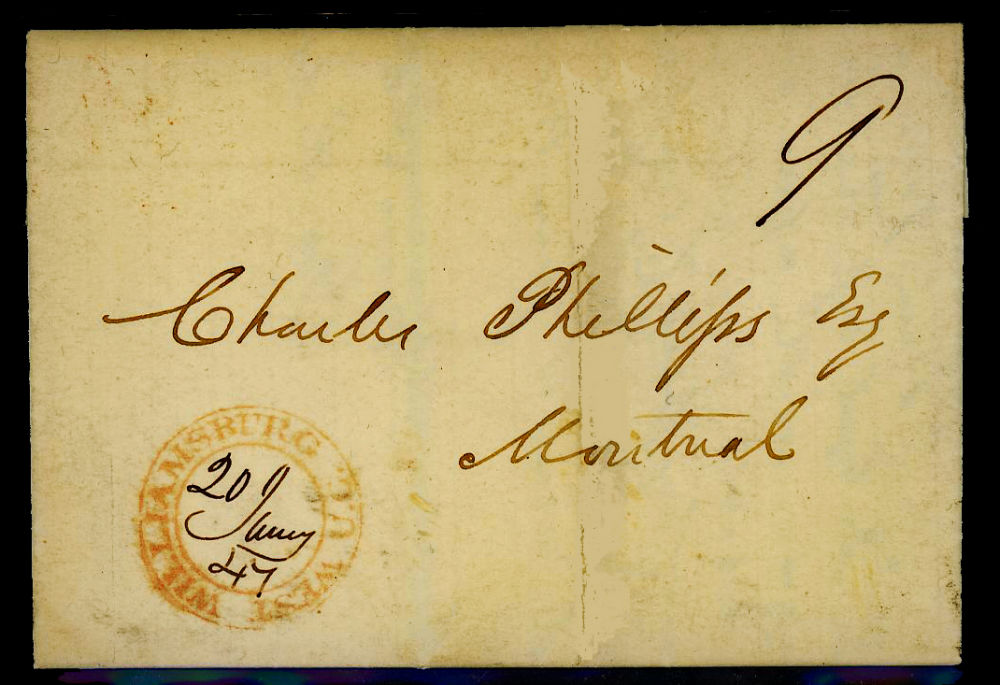 9
Charles Phillips Esq
Montreal
WEST WILLIAMSBURG U.C.
20
Jany
47